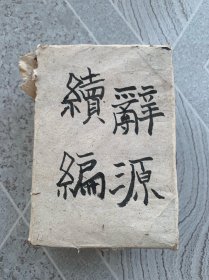 辭源
續編